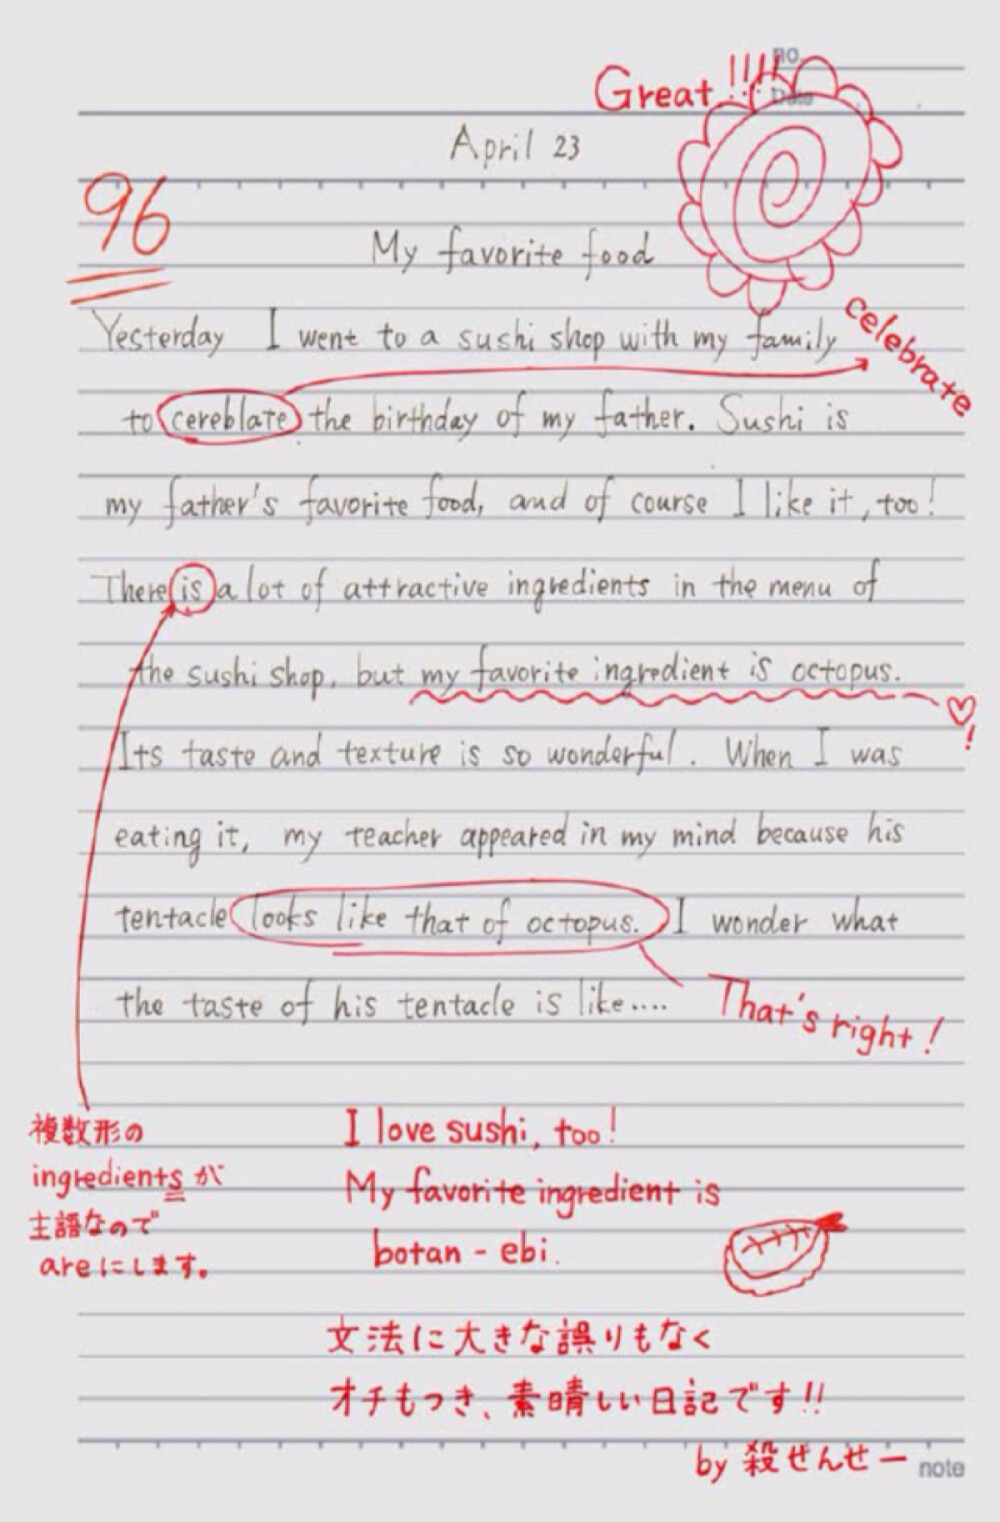 no.
Great!!!!
Date
April 23
96
My favorite food
Yesterday I went to a sushi shop with my family
celebrate
to cereblate the birthday of my father. Sushi is
my father's favorite food, and of course I like it, too!
There is a lot of attractive ingredients in the menu of
the sushi shop, but my favorite ingredient is octopus.
♡!
Its taste and texture is so wonderful. When I was
eating it, my teacher appeared in my mind because his
tentacle looks like that of octopus. I wonder what
the taste of his tentacle is like....
That's right!
複数形の
ingredientsが
主語なので
areにします。
I love sushi, too!
My favorite ingredient is
botan-ebi.
文法に大きな誤りもなく
オチもつき、素晴しい日記です!!
by 殺せんせー
note